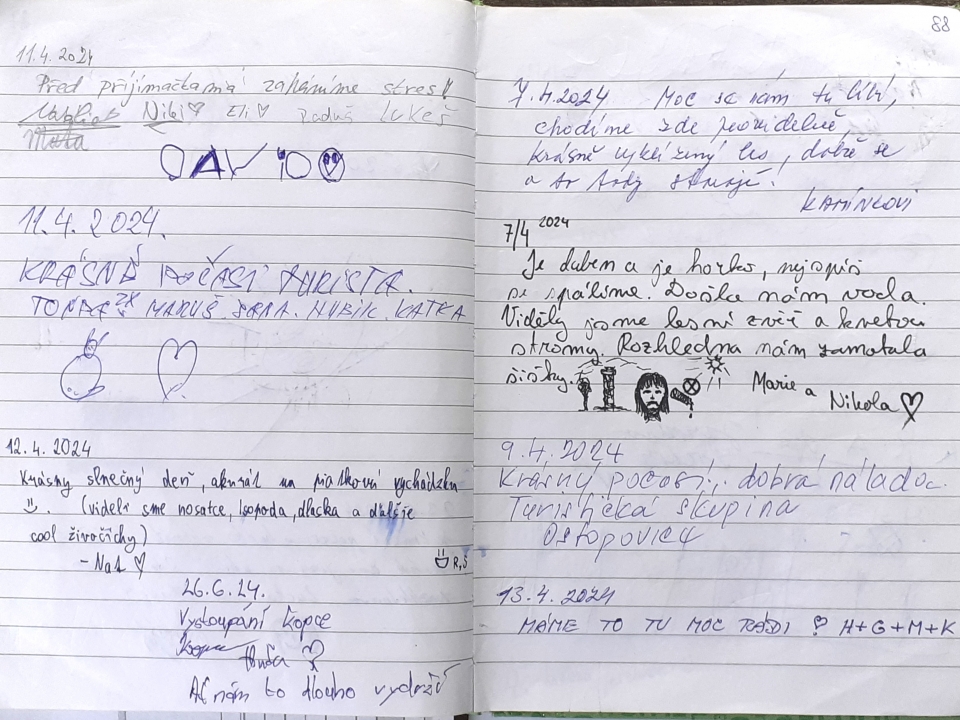 11.4.2024
Před přijímačkama zaháníme stres!
Niki♡ Eli♡ Raduš Lukeš
11.4.2024.
KRÁSNÉ POČASÍ TURISTA.
TONDA 2X MARUŠ JANA. HUBIK. KATKA
12.4.2024
Krásny slnečný deň, akurát na piatkovú vychádzku
. (videli sme nosatce, isopoda, dlaska a ďalšie
cool živočíchy)
- Nat ♡
R, Š
26.6.24.
Vystoupání kopce
♡
Ať nám to dlouho vydrží
88
7.4.2024 Moc se nám tu líbí,
chodíme zde pravidelně,
krásně vyklizený les, dobře se
o to tady starají!
KAMÍNKOVI
7/4 2024
Je duben a je horko, nejspíš
se spálíme. Došla nám voda.
Viděly jsme lesní zvěř a kvetou
stromy. Rozhledna nám zamotala
šišky.
Marie a
Nikola ♡
9.4.2024
Krásný počasí, dobrá nálada.
Turistická skupina
Ostopovice
13.4.2024
MÁME TO TU MOC RÁDI ♡ H+G+M+K